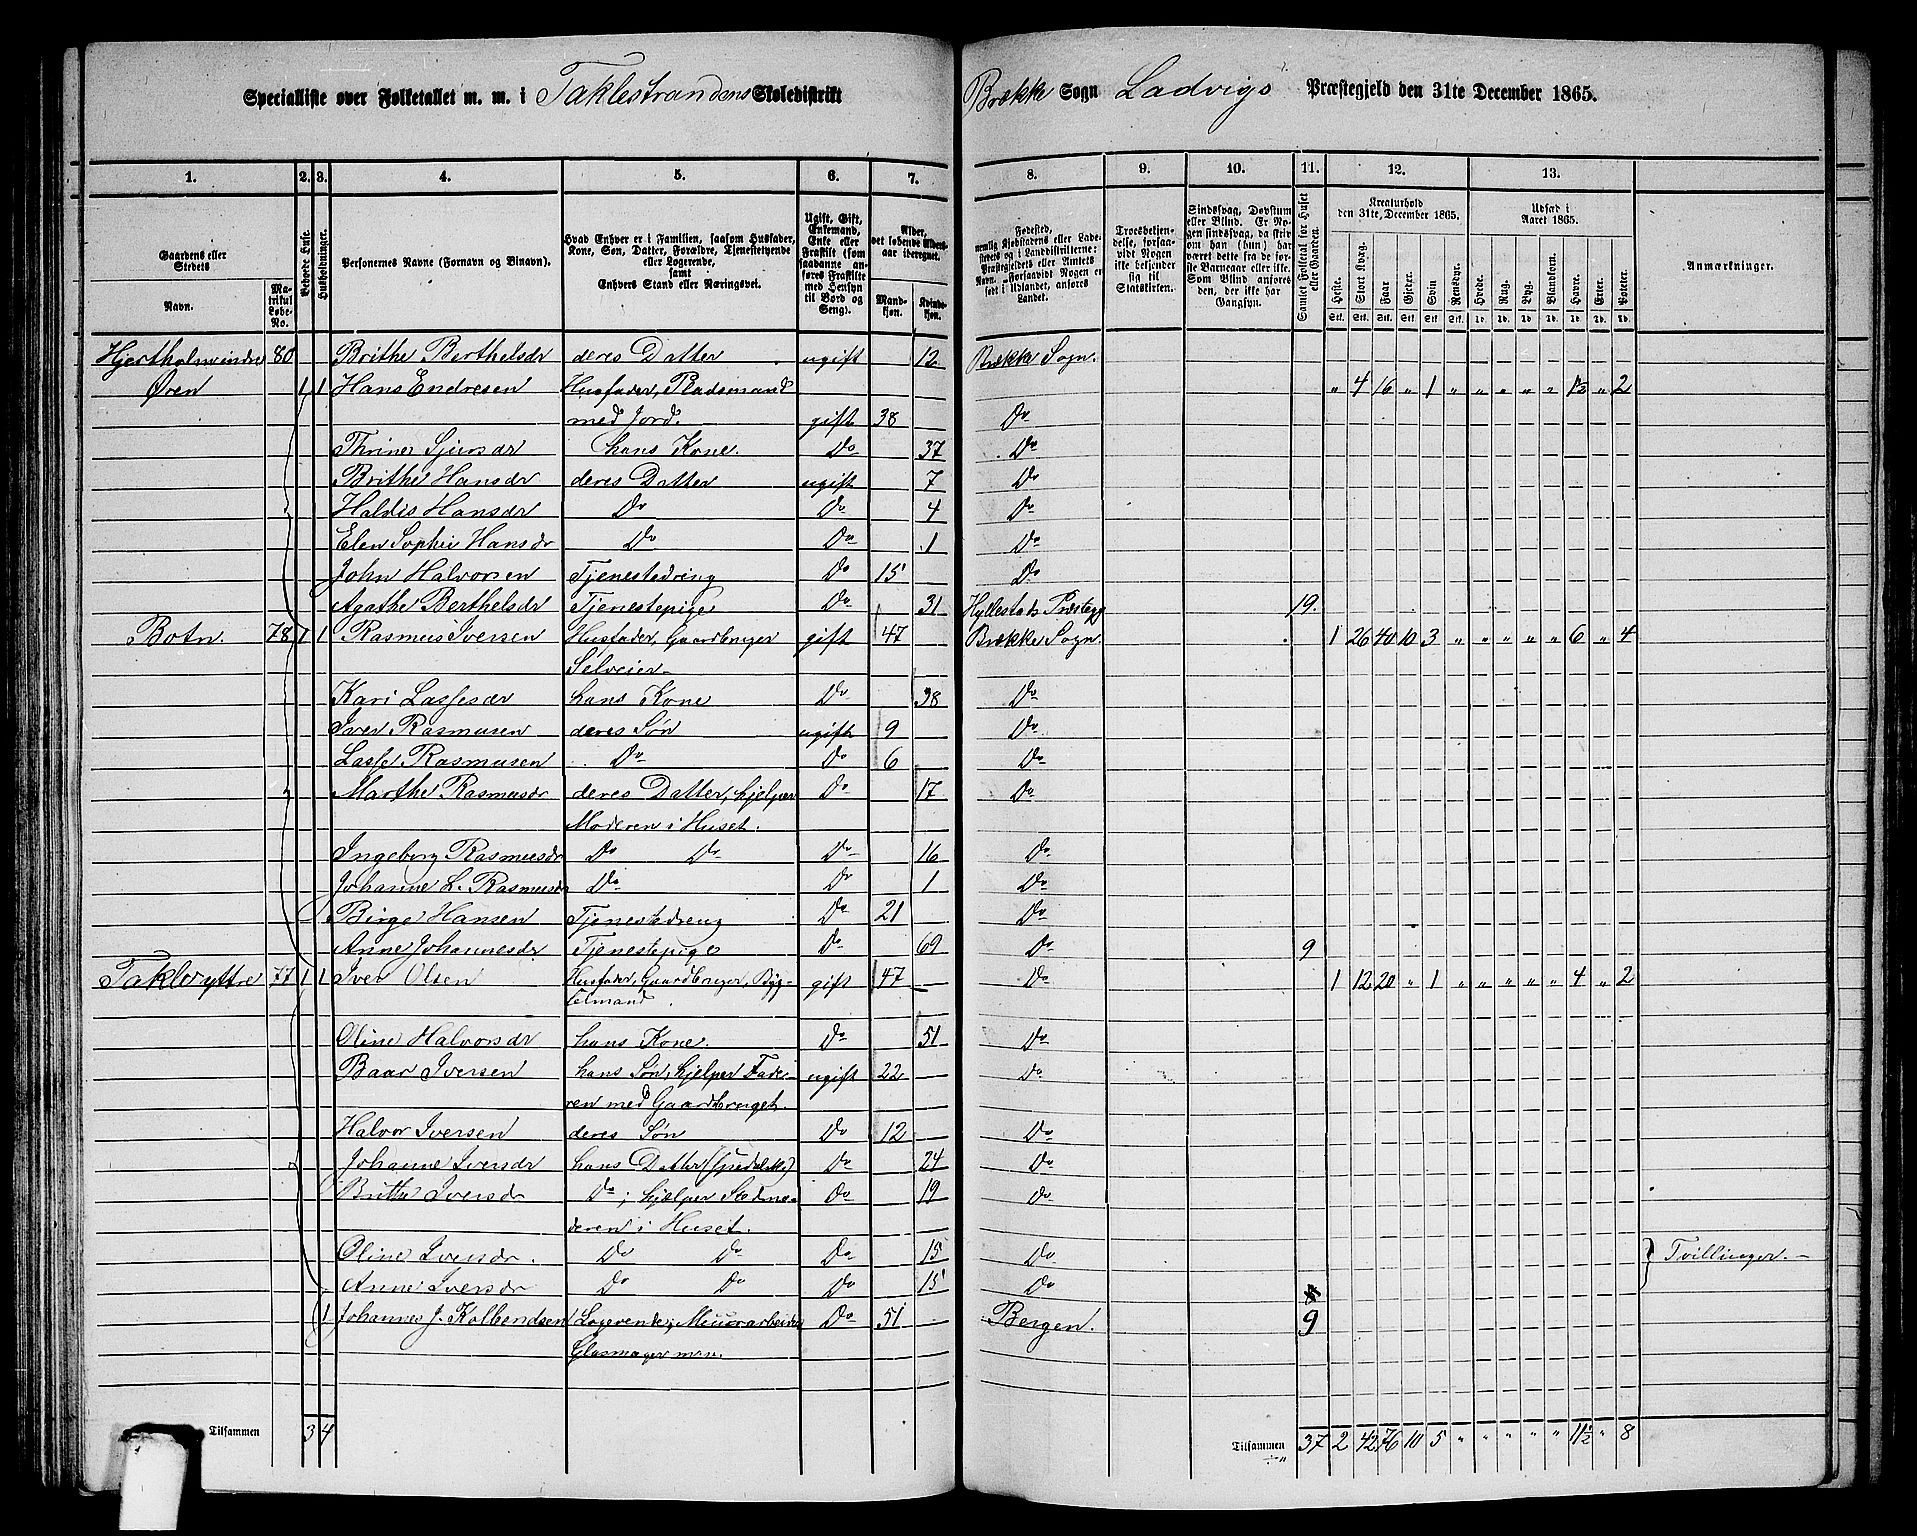 Specialliste over Folketallet m. m. i Taklestrandens Skoledistrikt Brække Sogn Ladvigs Præstegjeld den 31te December 1865.
1. 2. 3. 4. 5. 6. 7. 8. 9. 10. 11. 12. 13.
Gaardens eller Stedets
Navn. Matrikul Løbe-No.
Beboede Huse.
Husholdninger.
Personernes Navne (Fornavn og Binavn).
Hvad Enhver er i Familien, saasom Husfader, Kone, Søn, Datter, Forældre, Tjenestetyende eller Logerende, samt Enhvers Stand eller Næringsvei.
Ugift, Gift, Enkemand, Enke eller Fraskilt (som saadanne anføres Fraskilte med Hensyn til Bord og Seng).
Alder, det løbende Alders-aar iberegnet.
Mandkjøn. Kvindekjøn.
Fødested, nemlig Kjøbstadens eller Ladestedets og i Landdistrikterne: Præstegjeldets eller Amtets Navn. Forsaavidt Nogen er født i Udlandet, anføres Landet.
Troesbekjendelse, forsaavidt Nogen ikke bekjender sig til Statskirken.
Sindssvag, Døvstum eller Blind. Er Nogen sindssvag, da skriv om han (hun) har været dette fra de første Barneaar eller ikke. Som Blind anføres den, der ikke har Gangsyn.
Samlet Folketal for Huset eller Gaarden.
Kreaturhold den 31te December 1865.
Heste. Stort Kvæg. Faar Gjeter. Svin Rensdyr.
Stk. Stk. Stk. Stk. Stk. Stk.
Udsæd i Aaret 1865.
Hvede. Rug. Byg. Blandkorn. Havre. Erter. Poteter.
Td. Td. Td. Td. Td. Td. Td.
Anmærkninger.
Hjertholm indre 80 Brithe Berthelsdr deres Datter ugift 12 Brække Sogn.
Øren 1 1 Hans Endresen Husfader, Pladsmand " 4 16 " 1 " " " " " 1½ " 2
med Jord. gift 38 Do
Thrine Sjursdr hans Kone. Do 37 Do
Brithe Hansdr deres Datter ugift 7 Do
Haldis Hansdr Do Do 4 Do
Elen Sophie Hansdr Do Do 1 Do
John Halvorsen Tjenestedreng Do 15 Do
Agathe Berthelsdr Tjenestepige Do 31 Hyllestads Præstegj 19.
Botn. 78 1 1 Rasmus Iversen Husfader, Gaardbruger gift 47 Brække Sogn. 1 26 40 10 3 " " " " " 6 " 4
Selveier
Kari Lassesdr hans Kone Do 38 Do
Iver Rasmusen deres Søn ugift 9 Do
Lasse Rasmusen Do Do 6 Do
Marthe Rasmusdr deres Datter, hjelper Do 17 Do
Moderen i Huset.
Ingeborg Rasmusdr Do Do Do 16 Do
Johanne L. Rasmusdr Do Do 1 Do
Birge Hansen Tjenestedreng Do 21 Do
Anne Johannesdr Tjenestepige Do 69 Do 9
Takle yttre 77 1 1 Iver Olsen Husfader, Gaardbruger, Byg- gift 47 Do 1 12 20 " 1 " " " " " 4 " 2
selmand.
Oline Halvorsdr hans Kone. Do 51 Do
Baar Iversen hans Søn, hjelper Fade- ugift 22 Do
ren med Gaardbruget.
Halvor Iversen deres Søn Do 12 Do
Johanne Iversdr hans Datter Do 24 Do
Brithe Iversdr Do; hjælper Stedmo- Do 19 Do
deren i Huset.
Oline Iversdr. Do Do Do 15 Do Tvillinger.
Anne Iversdr Do Do Do 15 Do
1 Johannes J. Kolbendsen Logerende; Muurarbeider Do 51 Bergen. 9
Glasmager mm.
Tilsammen 3 4 Tilsammen 37 2 42 76 10 5 " " " " " 11½ " 8